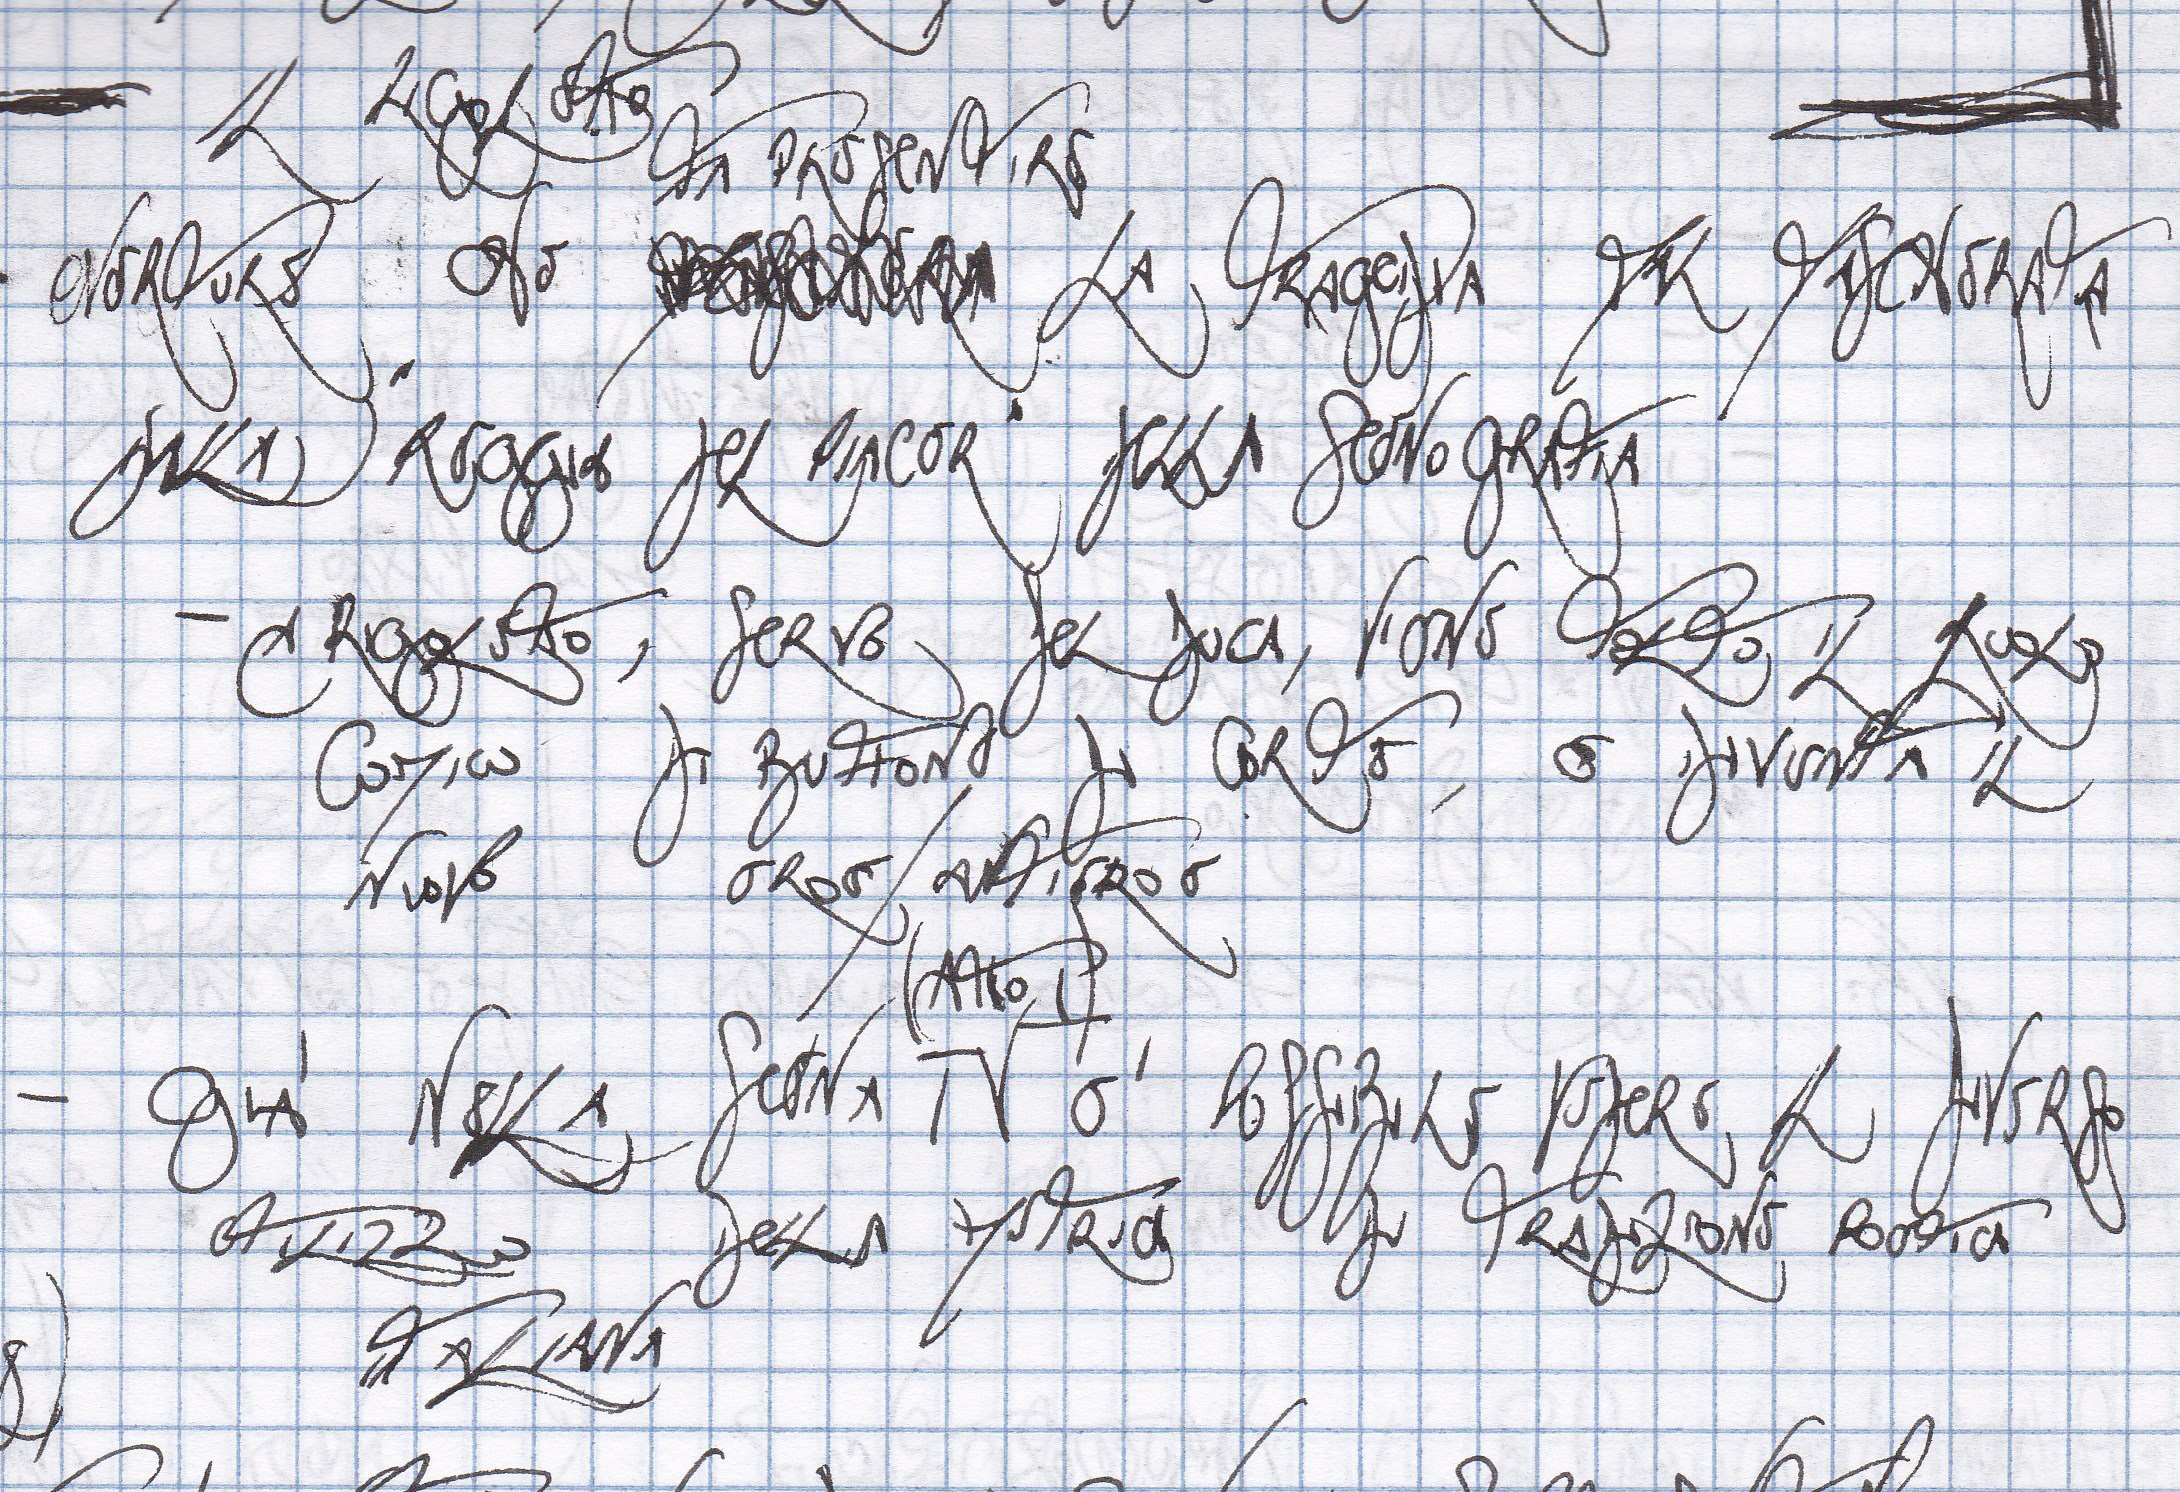 IL RIGOLETTO
FA PRESENTIRE
OVERTURE CHE LA TRAGEDIA MAL MASCHERATA
DALLA REGGIA DEL PIACER DELLA SCENOGRAFIA
- A RIGOLETTO, SERVO DEL DUCA, VIENE TOLTO IL RUOLO
COMICO DI BUFFONE DI CORTE, E DIVENTA IL
NUOVO EROE/ANTIEROE
(ATTO I)
- GIÀ NELLA SCENA IV È POSSIBILE VEDERE IL DIVERSO
UTILIZZO DELLA METRICA DI TRADIZIONE POETICA
ITALIANA